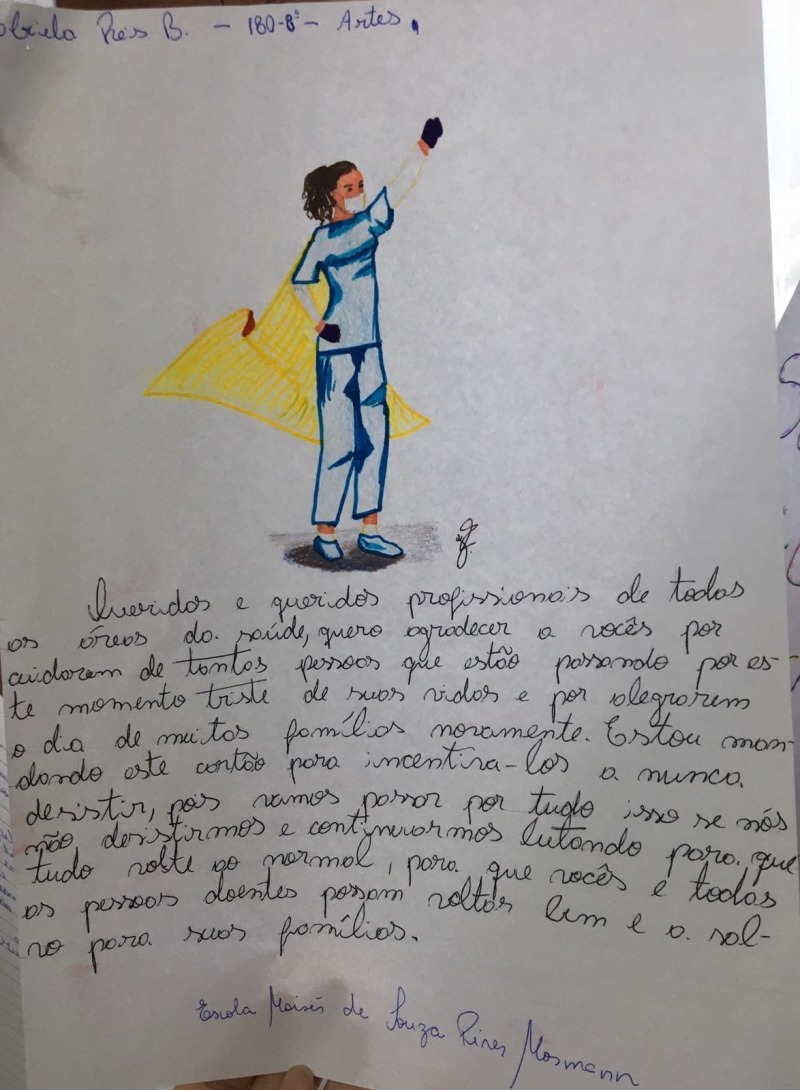 Reis B. - 180-8º - Artes.
Queridos e queridos profissionais de todas
as áreas da saúde, quero agradecer a vocês por
cuidarem de tantas pessoas que estão passando por es-
te momento triste de suas vidas e por alegrarem
o dia de muitas famílias novamente. Estou man-
dando este cartão para incentiva-los a nunca
desistir, pois vamos passar por tudo isso se nós
não desistirmos e continuarmos lutando para que
tudo volte ao normal, para que vocês e todas
as pessoas doentes possam voltar bem e a sal-
vo para suas famílias.
Escola Moisés de Souza Pires Mosmann